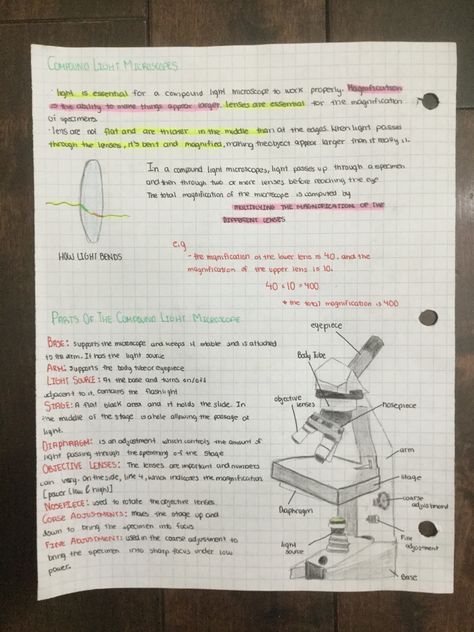 COMPOUND LIGHT MICROSCOPES
· light is essential for a compound light microscope to work properly. Magnification
is the ability to make things appear larger. Lenses are essential for the magnification
of specimens.
· Lens are not flat and are thicker in the middle than at the edges. When light passes
through the lenses, it's bent and magnified, making the object appear larger than it really is.
In a compound light microscopes, light passes up through a specimen
and then through two or more lenses before reaching the eye
The total magnification of the microscope is computed by
MULTIPLYING THE MAGNIFICATION OF THE
DIFFERENT LENSES
HOW LIGHT BENDS
e.g
- the magnification of the lower lens is 40, and the
magnification of the upper lens is 10.
40 x 10 = 400
* the total magnification is 400
PARTS OF THE COMPOUND LIGHT MICROSCOPE
BASE: Supports the microscope and keeps it stable and is attached
to its arm. It has the light source
ARM: Supports the body tube or eyepiece
LIGHT SOURCE: At the base and turns on/off
adjacent to it, contains the flashlight
STAGE: A flat black area and it holds the slide. In
the middle of the stage is a hole allowing the passage of
light.
DIAPHRAGM: is an adjustment which controls the amount of
light passing through the opening of the stage
OBJECTIVE LENSES: The lenses are important and numbers
can vary. On the side, like 4, which indicates the magnification
[power (low & high)]
NOSEPIECE: used to rotate the objective lenses.
CORSE ADJUSTMENTS: moves the stage up and
down to bring the specimen into focus
FINE ADJUSTMENT: used in the coarse adjustment to
bring the specimen into sharp focus under low
power.
eyepiece
Body Tube
objective
lenses
nosepiece
arm
stage
coarse
adjustment
Diaphragm
light
source
Fine
adjustment
Base